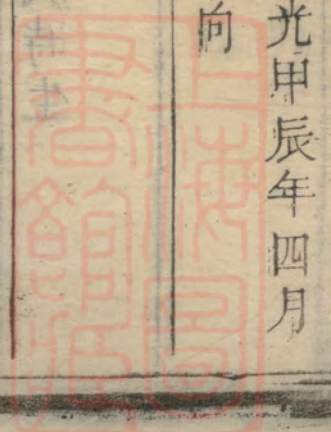 光甲辰年四月
向
上海圖
書館藏